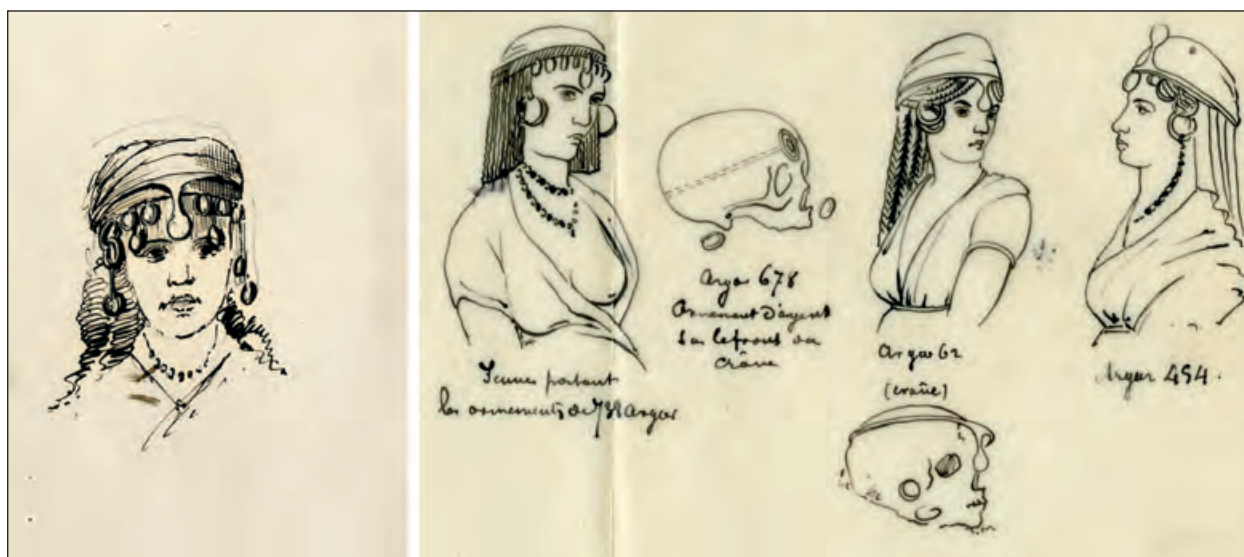 portant
les ornements de 738 Argar
Argar 678
Ornement d'argent
sur le front du
crâne
Argar 62
(crâne)
Argar 454.